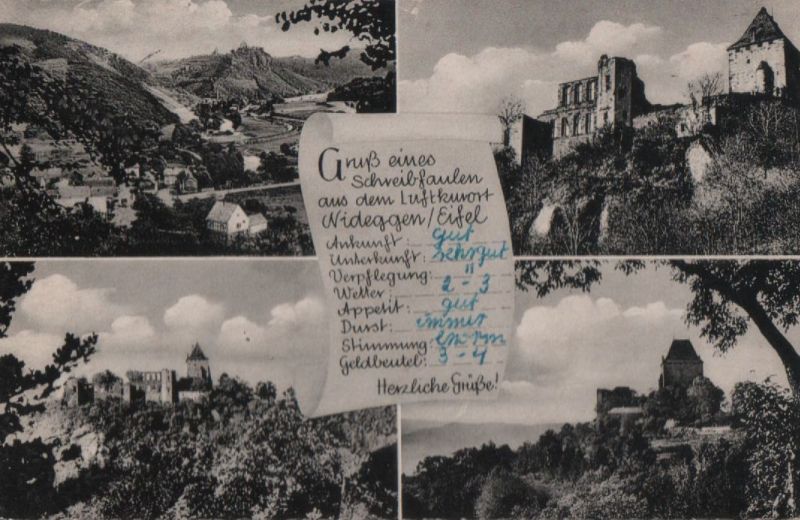 Gruß eines
Schreibfaulen
aus dem Luftkurort
Nideggen/Eifel
Ankunft: gut
Unterkunft: sehr gut
Verpflegung: "
Wetter: 2-3
Appetit: gut
Durst: immer
Stimmung: enorm
Geldbeutel: 3-4
Herzliche Grüße!